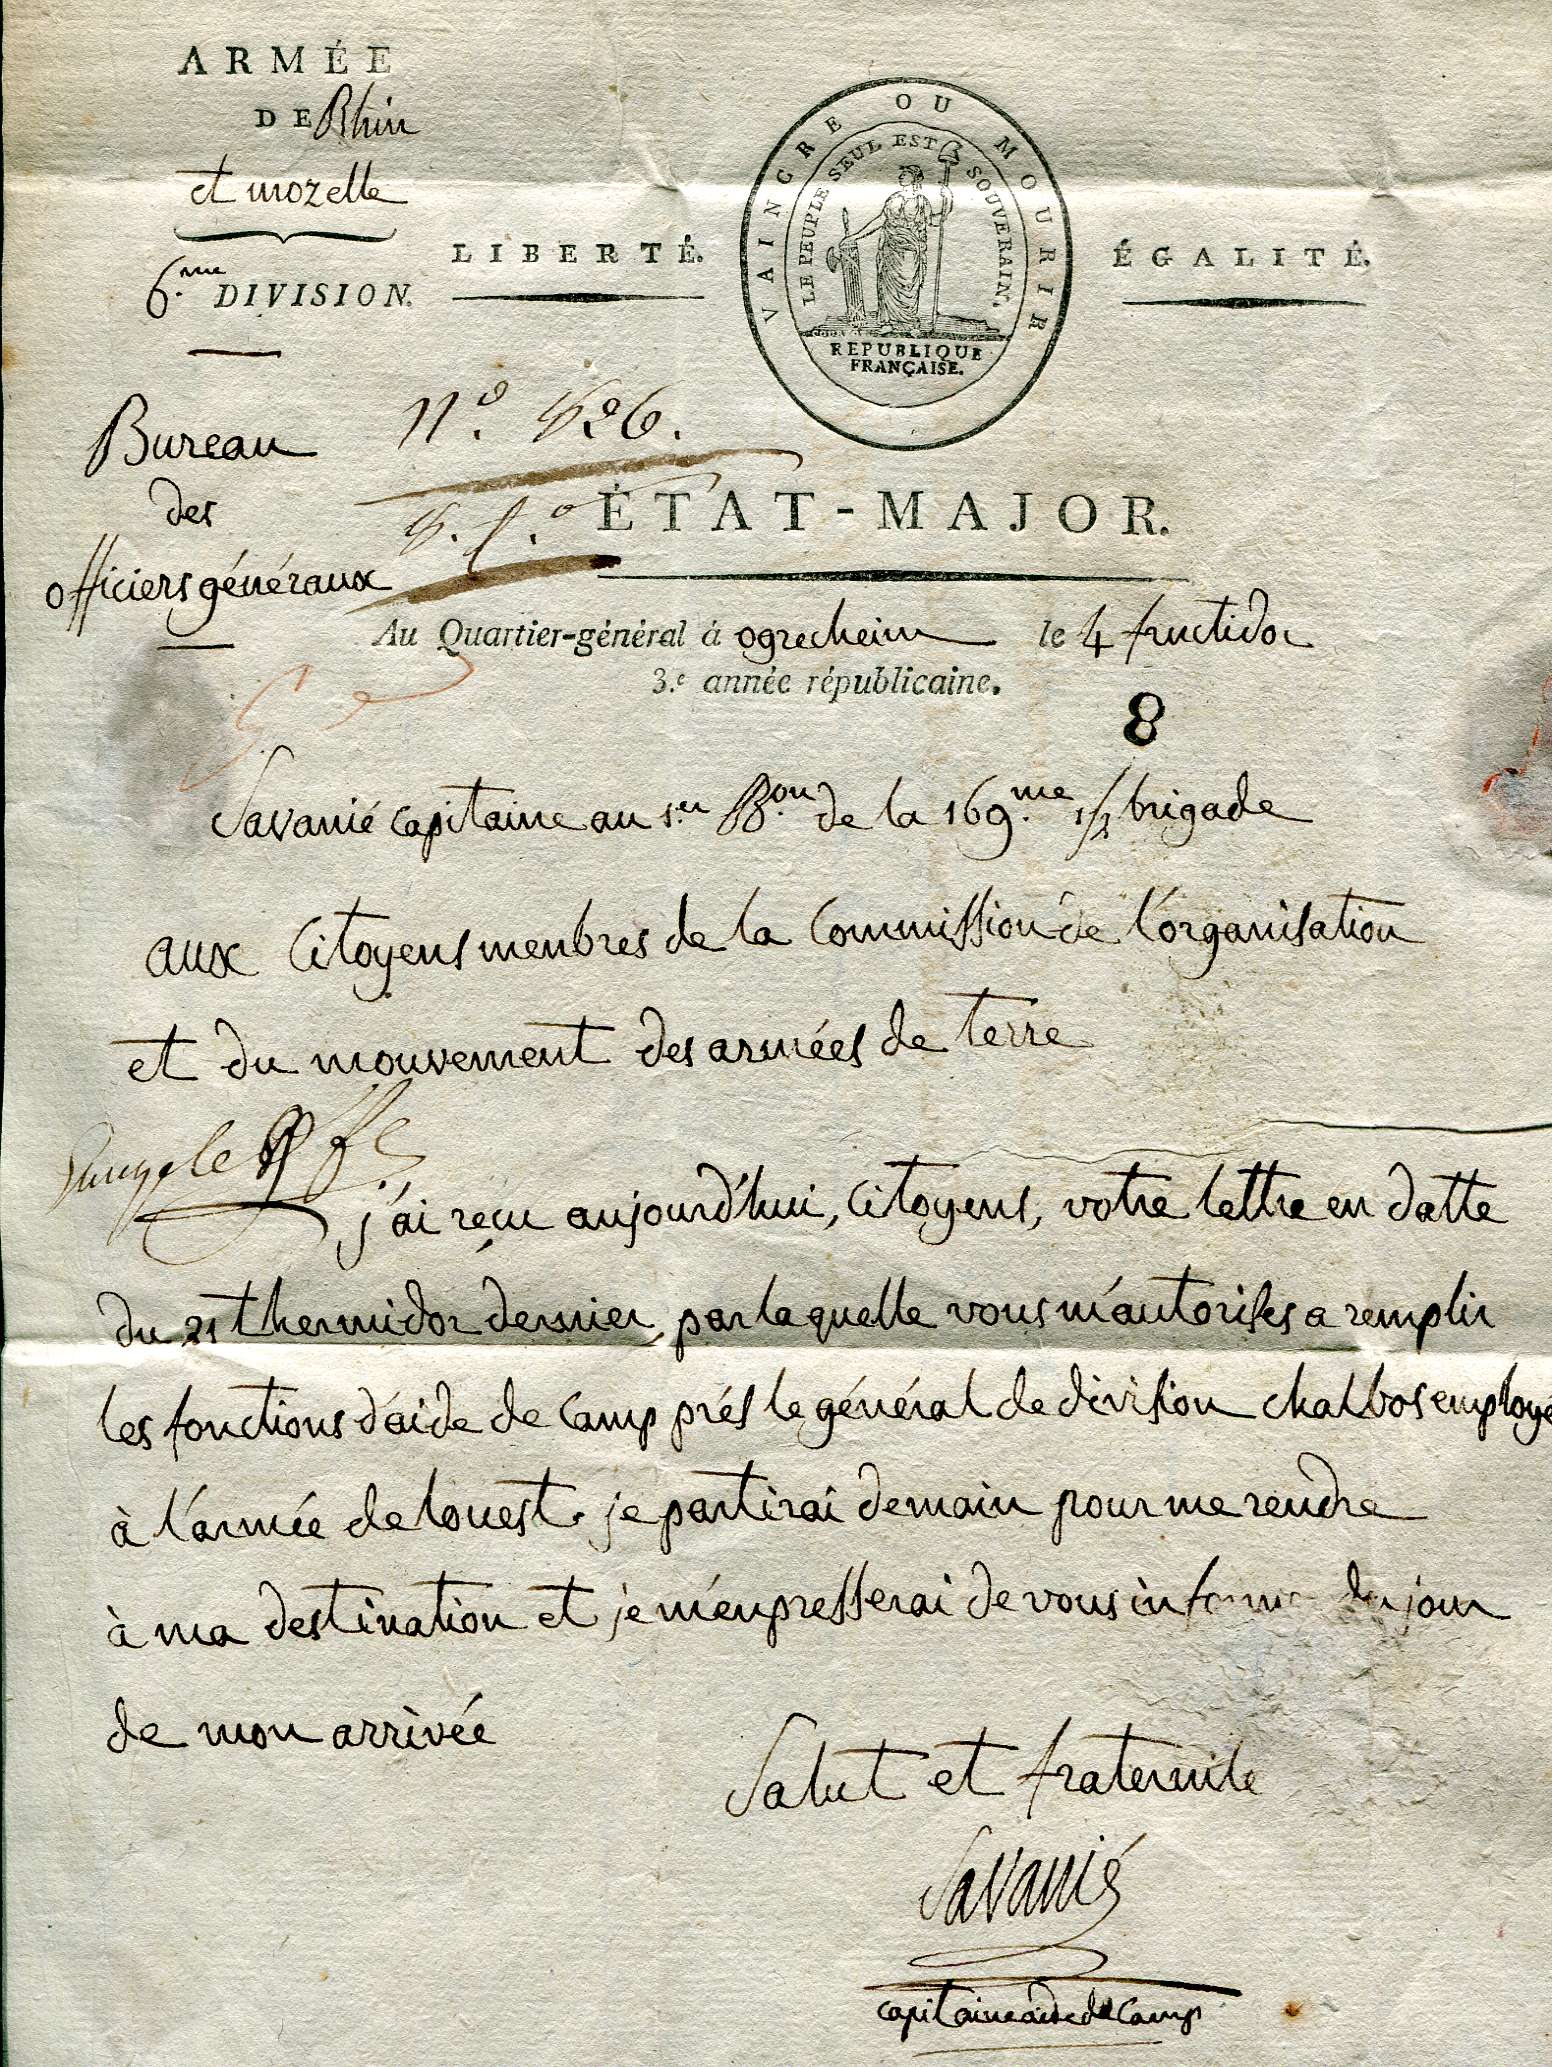 ARMÉE
DE Rhin
et mozelle
6.me DIVISION.
LIBERTÉ.
VAINCRE OU MOURIR
LE PEUPLE SEUL EST SOUVERAIN.
REPUBLIQUE
FRANÇAISE.
ÉGALITÉ.
Bureau
des
officiers généraux
N.o 826.
ÉTAT-MAJOR.
Au Quartier-général à ogrecheim le 4 fructidor
3.e année républicaine.
8
Savanié capitaine au 1.er B.on de la 169.me 1/2 brigade
aux Citoyens menbres de la Commission de l'organisation
et du mouvement des armées de terre
j'ai reçu aujourd'hui, Citoyens, votre lettre en datte
du 21 thermidor dernier, par laquelle vous m'autorises a remplir
les fonctions d'aide de Camp prés le général de division chalbos employé
à l'armée de louest. je partirai demain pour me rendre
à ma destination et je m'enpresserai de vous informer du jour
de mon arrivée
Salut et fraternite
Savanié
capitaine aide de Camp